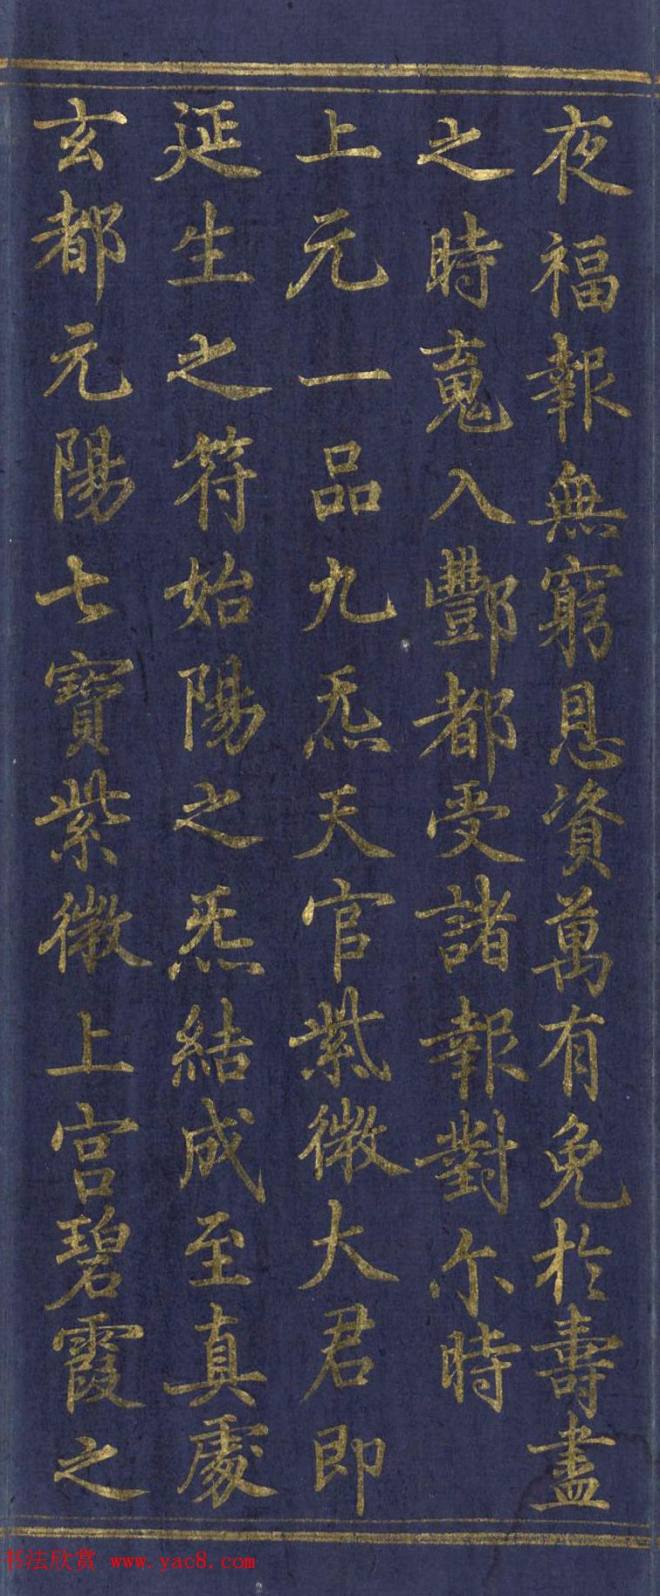 夜福報無窮恩資萬有免於壽盡
之時䰟入酆都受諸報對尒時
上元一品九炁天官紫微大君即
延生之符始陽之炁結成至真處
玄都元陽七寶紫微上宮碧霞之
书法欣赏 www.yac8.com